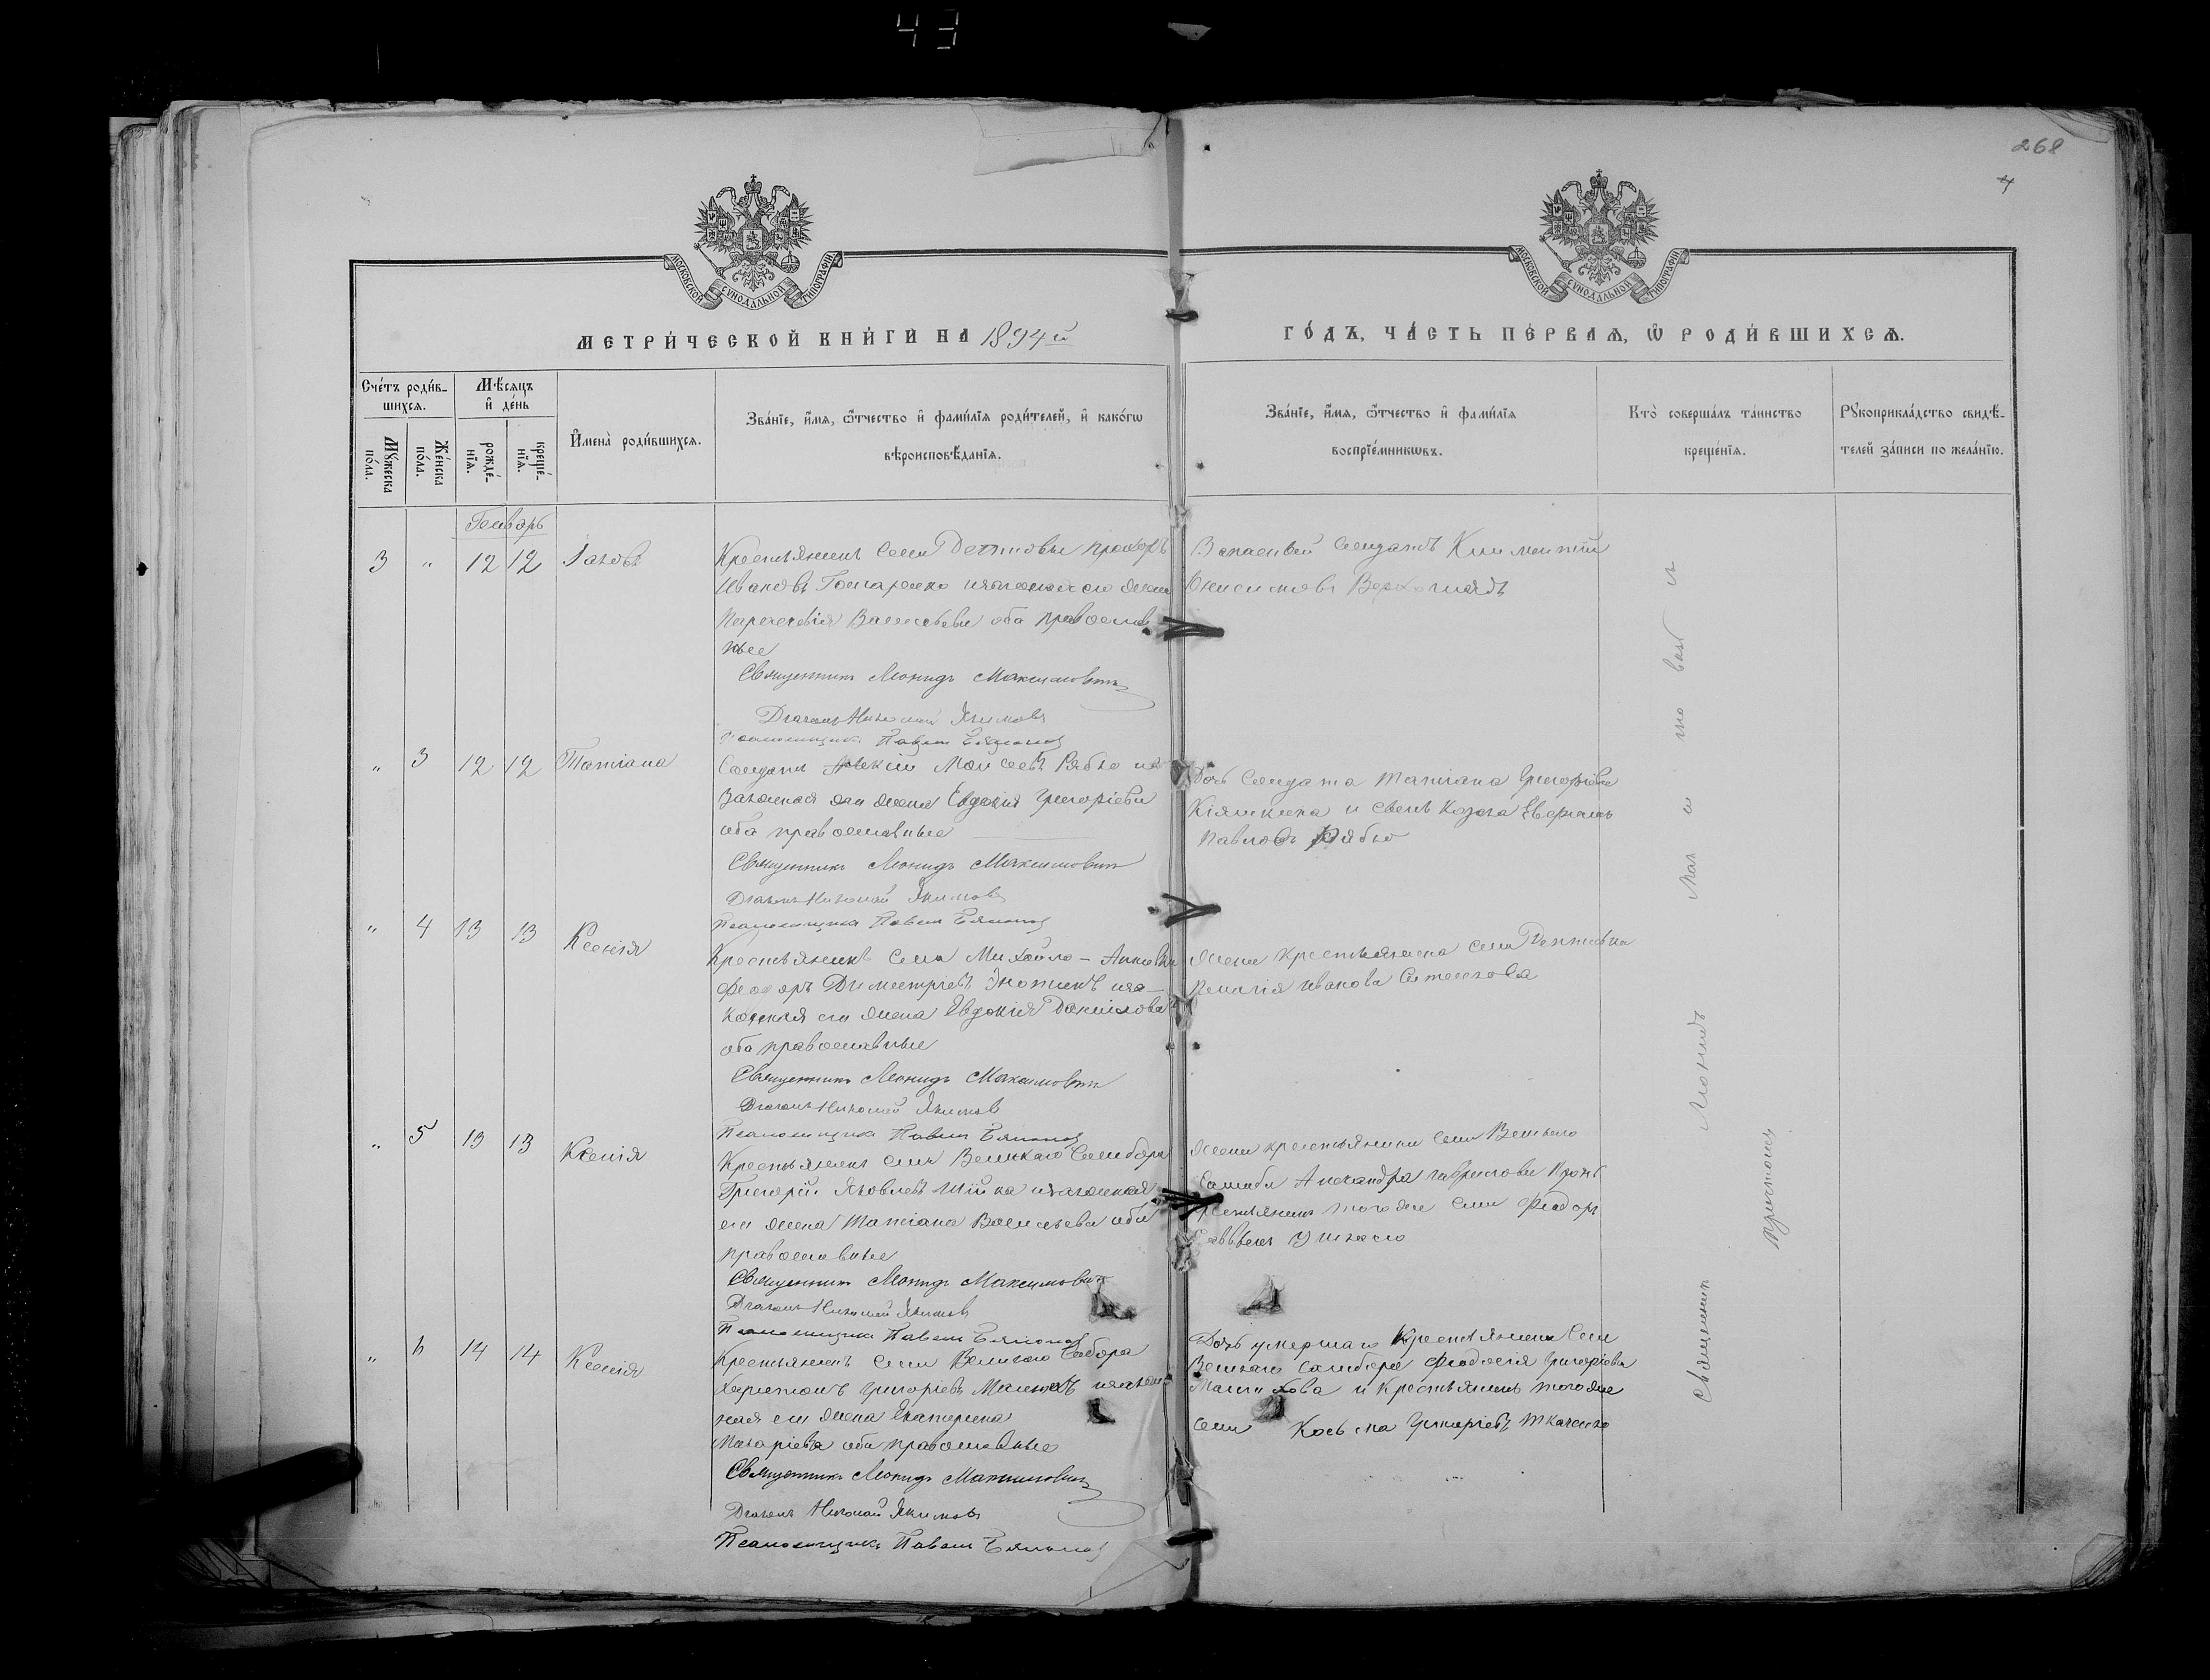 43
268
4
МОСКОВСКОЙ СѴНОДАЛЬНОЙ ТИПОГРАФІИ
МОСКОВСКОЙ СѴНОДАЛЬНОЙ ТИПОГРАФІИ
МЕТРИ́ЧЕСКОЙ КНИ́ГИ НА 1894й
ГО́ДЪ, ЧА́СТЬ ПЕ́РВАѦ, Ѿ РОДИ́ВШИХСѦ.
Сче́тъ роди́в-
шихсѧ.
Мѣ́сяцъ
и҆ де́нь
Мꙋ́жеска
по́ла.
Же́нска
по́ла.
рожде́-
нїѧ.
креще́-
нїѧ.
И҆мена̀ роди́вшихсѧ.
Зва́нїе, и҆́мѧ, ѻ҆́тчество и҆ фами́лїѧ роди́телей, и҆ како́гѡ
вѣроисповѣ́данїѧ.
Зва́нїе, и҆́мѧ, ѻ҆́тчество и҆ фами́лїѧ
воспрїе́мникѡвъ.
Кто̀ соверша́лъ та́инство
креще́нїѧ.
Рꙋкоприкла́дство свидѣ́-
телей за́писи по жела́нїю.
Генварь
3 " 12 12 Іаковъ
Крестьянинъ села Дептовки Прохоръ
Ивановъ Гончаренко и законная его жена
Параскевія Васильева оба православ
ные
Священникъ Леонидъ Максимовичъ
Діаконъ Николай Якимовъ
Псаломщикъ Павелъ
Запасный Солдатъ Климентій
Онисимовъ Верхогляд
" 3 12 12 Татіана
Солдатъ Алексій Моисеевъ Рябко и
законная его жена Евдокия Григоріева
оба православные
Священникъ Леонидъ Максимовичъ
Діаконъ Николай Якимовъ
Псаломщикъ Павелъ
Дочь Солдата Татіана Григоріева
и сынъ Козака
Павловъ Рябко
" 4 13 13 Ксенія
Крестьянинъ села Михайло-Анновки
Феодоръ Димитріевъ и за-
конная его жена Евдокія Даніилова
оба православные
Священникъ Леонидъ Максимовичъ
Діаконъ Николай Якимовъ
Псаломщикъ Павелъ
Жена крестьянина села Дептовки
Пелагія Иванова
" 5 13 13 Ксенія
Крестьянинъ села Великаго Самбора
Григорій Яковлевъ Шійка и законная
его жена Татіана Васильева оба
православные
Священникъ Леонидъ Максимовичъ
Діаконъ Николай Якимовъ
Псаломщикъ Павелъ
Жена крестьянина села Великаго
Самбора Александра Гаврилова
крестьянинъ того же села Феодоръ
" 6 14 14 Ксенія
Крестьянинъ села Великаго Самбора
Харитонъ Григоріевъ и закон-
ная его жена Екатерина
Макаріева оба православные
Священникъ Леонидъ Максимовичъ
Діаконъ Николай Якимовъ
Псаломщикъ Павелъ
Дочь умершаго Крестьянина Села
Великаго Самбора Феодосія Григоріева
и Крестьянинъ того же
села Косьма Григоріевъ Ткаченко
Священникъ Леонидъ Максимовичъ